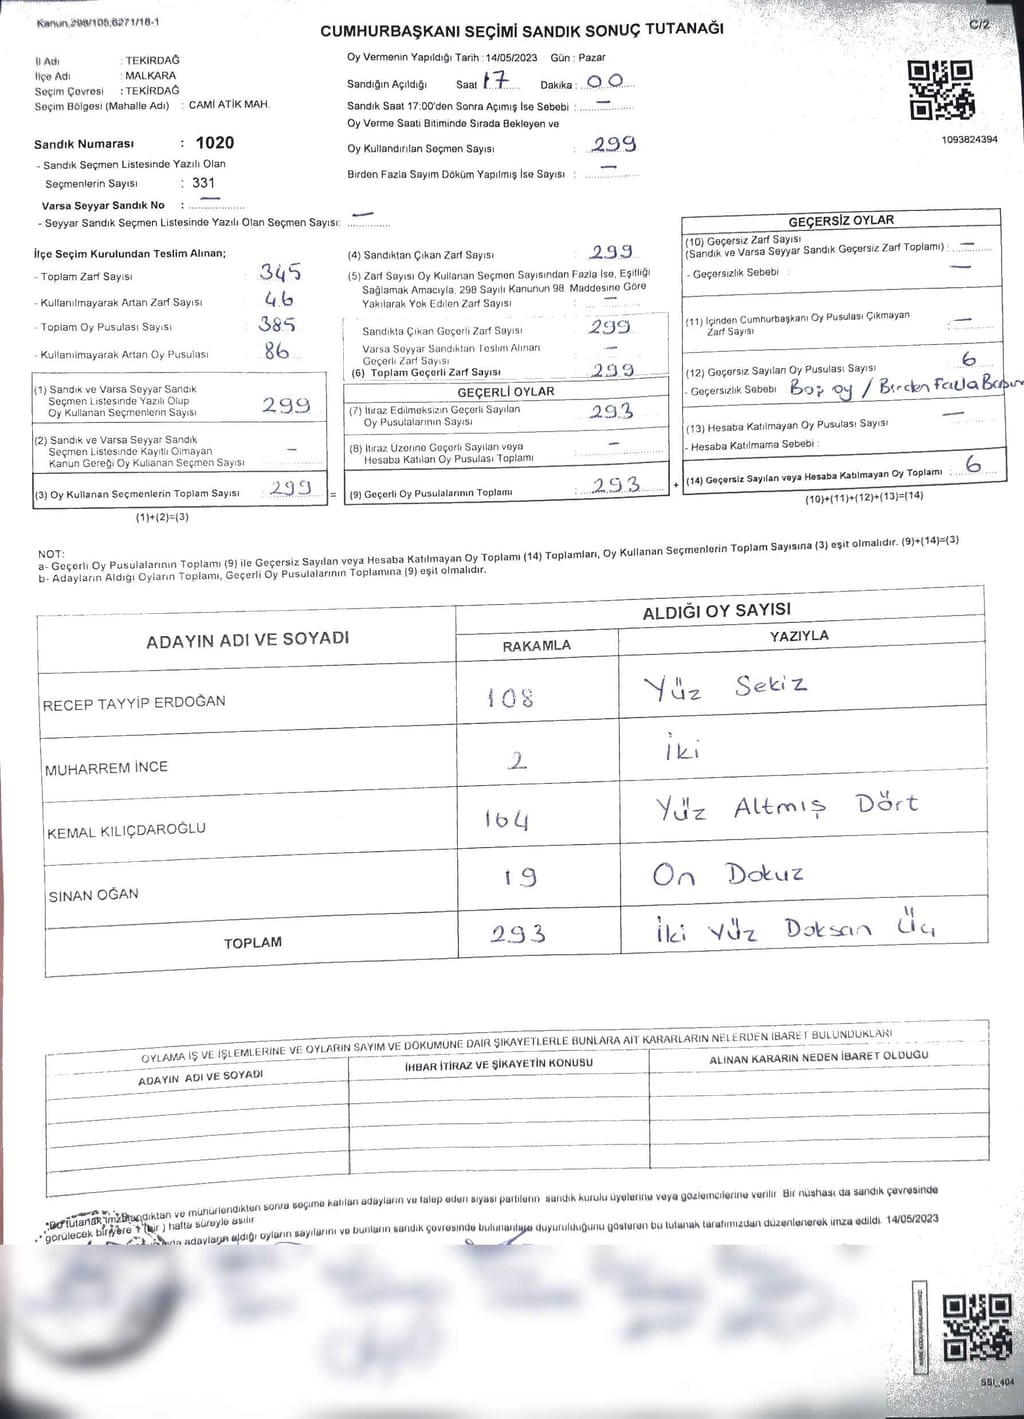 Kanun,298/105;6271/18-1
CUMHURBAŞKANI SEÇİMİ SANDIK SONUÇ TUTANAĞI
C/2
İl Adı : TEKİRDAĞ
İlçe Adı : MALKARA
Seçim Çevresi : TEKİRDAĞ
Seçim Bölgesi (Mahalle Adı) : CAMİ ATİK MAH.
Sandık Numarası : 1020
- Sandık Seçmen Listesinde Yazılı Olan
Seçmenlerin Sayısı : 331
Varsa Seyyar Sandık No : —
- Seyyar Sandık Seçmen Listesinde Yazılı Olan Seçmen Sayısı: —
Oy Vermenin Yapıldığı Tarih : 14/05/2023 Gün : Pazar
Sandığın Açıldığı Saat 17 Dakika : 00
Sandık Saat 17:00'den Sonra Açımış İse Sebebi : —
Oy Verme Saati Bitiminde Sırada Bekleyen ve
Oy Kullandırılan Seçmen Sayısı : 299
Birden Fazla Sayım Döküm Yapılmış İse Sayısı : —
1093824394
İlçe Seçim Kurulundan Teslim Alınan;
- Toplam Zarf Sayısı : 345
- Kullanılmayarak Artan Zarf Sayısı : 46
- Toplam Oy Pusulası Sayısı : 385
- Kullanılmayarak Artan Oy Pusulası : 86
(1) Sandık ve Varsa Seyyar Sandık
Seçmen Listesinde Yazılı Olup
Oy Kullanan Seçmenlerin Sayısı 299
(2) Sandık ve Varsa Seyyar Sandık
Seçmen Listesinde Kayıtlı Olmayan
Kanun Gereği Oy Kullanan Seçmen Sayısı —
(3) Oy Kullanan Seçmenlerin Toplam Sayısı : 299 =
(1)+(2)=(3)
(4) Sandıktan Çıkan Zarf Sayısı : 299
(5) Zarf Sayısı Oy Kullanan Seçmen Sayısından Fazla İse, Eşitliği
Sağlamak Amacıyla, 298 Sayılı Kanunun 98. Maddesine Göre
Yakılarak Yok Edilen Zarf Sayısı : —
Sandıkta Çıkan Geçerli Zarf Sayısı : 299
Varsa Seyyar Sandıktan Teslim Alınan
Geçerli Zarf Sayısı —
(6) Toplam Geçerli Zarf Sayısı : 299
GEÇERLİ OYLAR
(7) İtiraz Edilmeksizin Geçerli Sayılan
Oy Pusulalarının Sayısı : 293
(8) İtiraz Üzerine Geçerli Sayılan veya
Hesaba Katılan Oy Pusulası Toplamı : —
(9) Geçerli Oy Pusulalarının Toplamı : 293 +
GEÇERSİZ OYLAR
(10) Geçersiz Zarf Sayısı
(Sandık ve Varsa Seyyar Sandık Geçersiz Zarf Toplamı) : —
- Geçersizlik Sebebi : —
(11) İçinden Cumhurbaşkanı Oy Pusulası Çıkmayan
Zarf Sayısı : —
(12) Geçersiz Sayılan Oy Pusulası Sayısı : 6
- Geçersizlik Sebebi Boş oy / Birden Fazla
(13) Hesaba Katılmayan Oy Pusulası Sayısı : —
- Hesaba Katılmama Sebebi :
(14) Geçersiz Sayılan veya Hesaba Katılmayan Oy Toplamı : 6
(10)+(11)+(12)+(13)=(14)
NOT:
a- Geçerli Oy Pusulalarının Toplamı (9) ile Geçersiz Sayılan veya Hesaba Katılmayan Oy Toplamı (14) Toplamları, Oy Kullanan Seçmenlerin Toplam Sayısına (3) eşit olmalıdır. (9)+(14)=(3)
b- Adayların Aldığı Oyların Toplamı, Geçerli Oy Pusulalarının Toplamına (9) eşit olmalıdır.
ADAYIN ADI VE SOYADI
ALDIĞI OY SAYISI
RAKAMLA YAZIYLA
RECEP TAYYİP ERDOĞAN 108 Yüz Sekiz
MUHARREM İNCE 2 İki
KEMAL KILIÇDAROĞLU 164 Yüz Altmış Dört
SİNAN OĞAN 19 On Dokuz
TOPLAM 293 İki Yüz Doksan Üç
OYLAMA İŞ VE İŞLEMLERİNE VE OYLARIN SAYIM VE DÖKÜMÜNE DAİR ŞİKAYETLERLE BUNLARA AİT KARARLARIN NELERDEN İBARET BULUNDUKLARI
ADAYIN ADI VE SOYADI İHBAR İTİRAZ VE ŞİKAYETİN KONUSU ALINAN KARARIN NEDEN İBARET OLDUĞU
Bu tutanak imzalandıktan ve mühürlendikten sonra seçime katılan adayların ve talep eden siyasi partilerin sandık kurulu üyelerine veya gözlemcilerine verilir. Bir nüshası da sandık çevresinde
görülecek bir yere 1 (bir) hafta süreyle asılır.
adayların aldığı oyların sayılarını ve bunların sandık çevresinde bulunanlara duyurulduğunu gösteren bu tutanak tarafımızdan düzenlenerek imza edildi. 14/05/2023
SSI_404